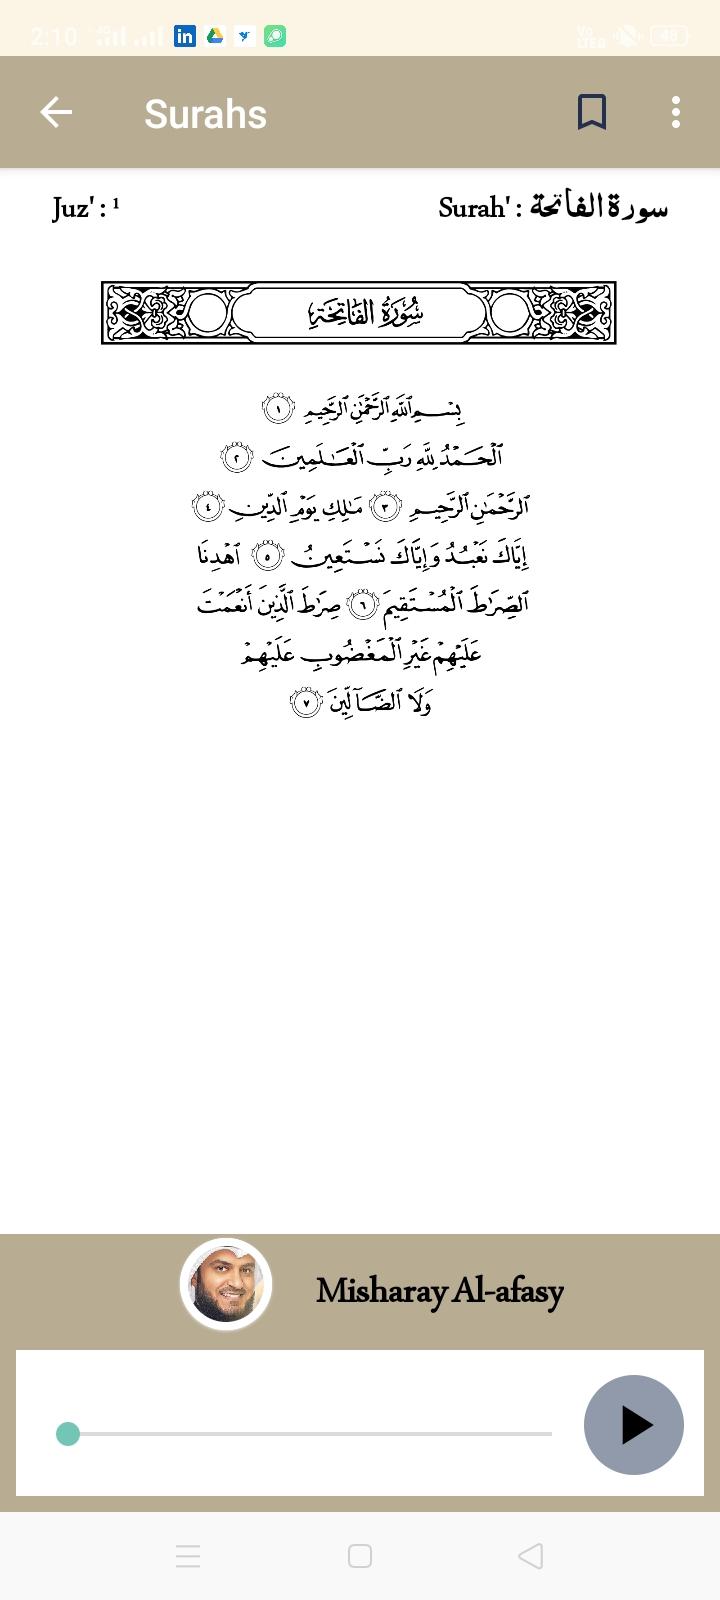 2:10
Vo LTE
48
Surahs
Juz' : ¹
Surah' : سورة الفاتحة
سُورَةُ الفَاتِحَةِ
بِسْمِ ٱللَّهِ ٱلرَّحْمَٰنِ ٱلرَّحِيمِ ١
ٱلْحَمْدُ لِلَّهِ رَبِّ ٱلْعَٰلَمِينَ ٢
ٱلرَّحْمَٰنِ ٱلرَّحِيمِ ٣ مَٰلِكِ يَوْمِ ٱلدِّينِ ٤
إِيَّاكَ نَعْبُدُ وَإِيَّاكَ نَسْتَعِينُ ٥ ٱهْدِنَا
ٱلصِّرَٰطَ ٱلْمُسْتَقِيمَ ٦ صِرَٰطَ ٱلَّذِينَ أَنْعَمْتَ
عَلَيْهِمْ غَيْرِ ٱلْمَغْضُوبِ عَلَيْهِمْ
وَلَا ٱلضَّآلِّينَ ٧
Misharay Al-afasy